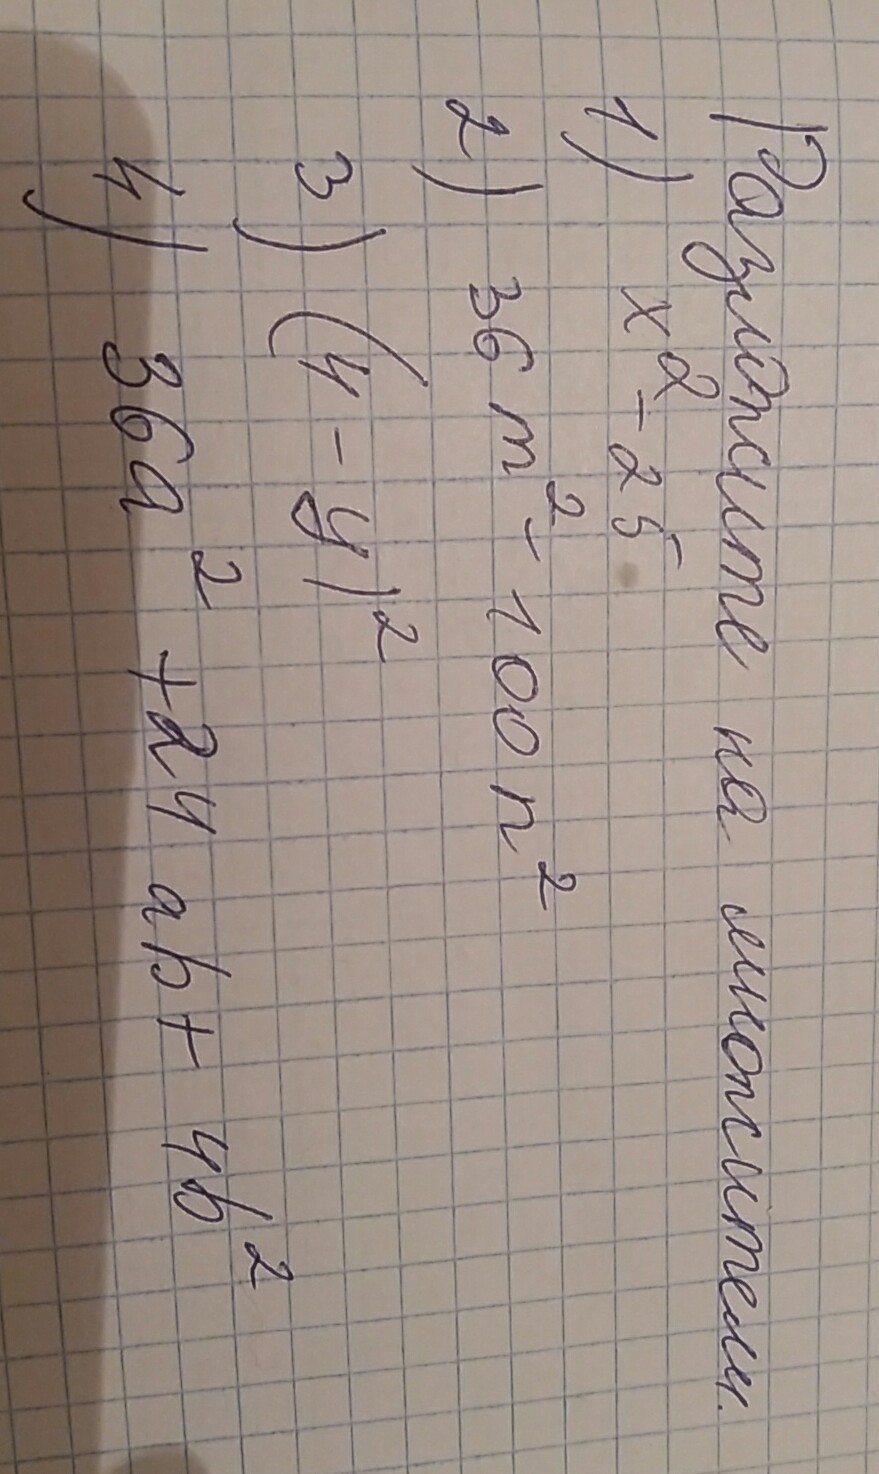 Разложите на множители.
1) x² - 25
2) 36 m² - 100 n²
3) (4 - y)²
4) 36a² + 24 ab + 4b²